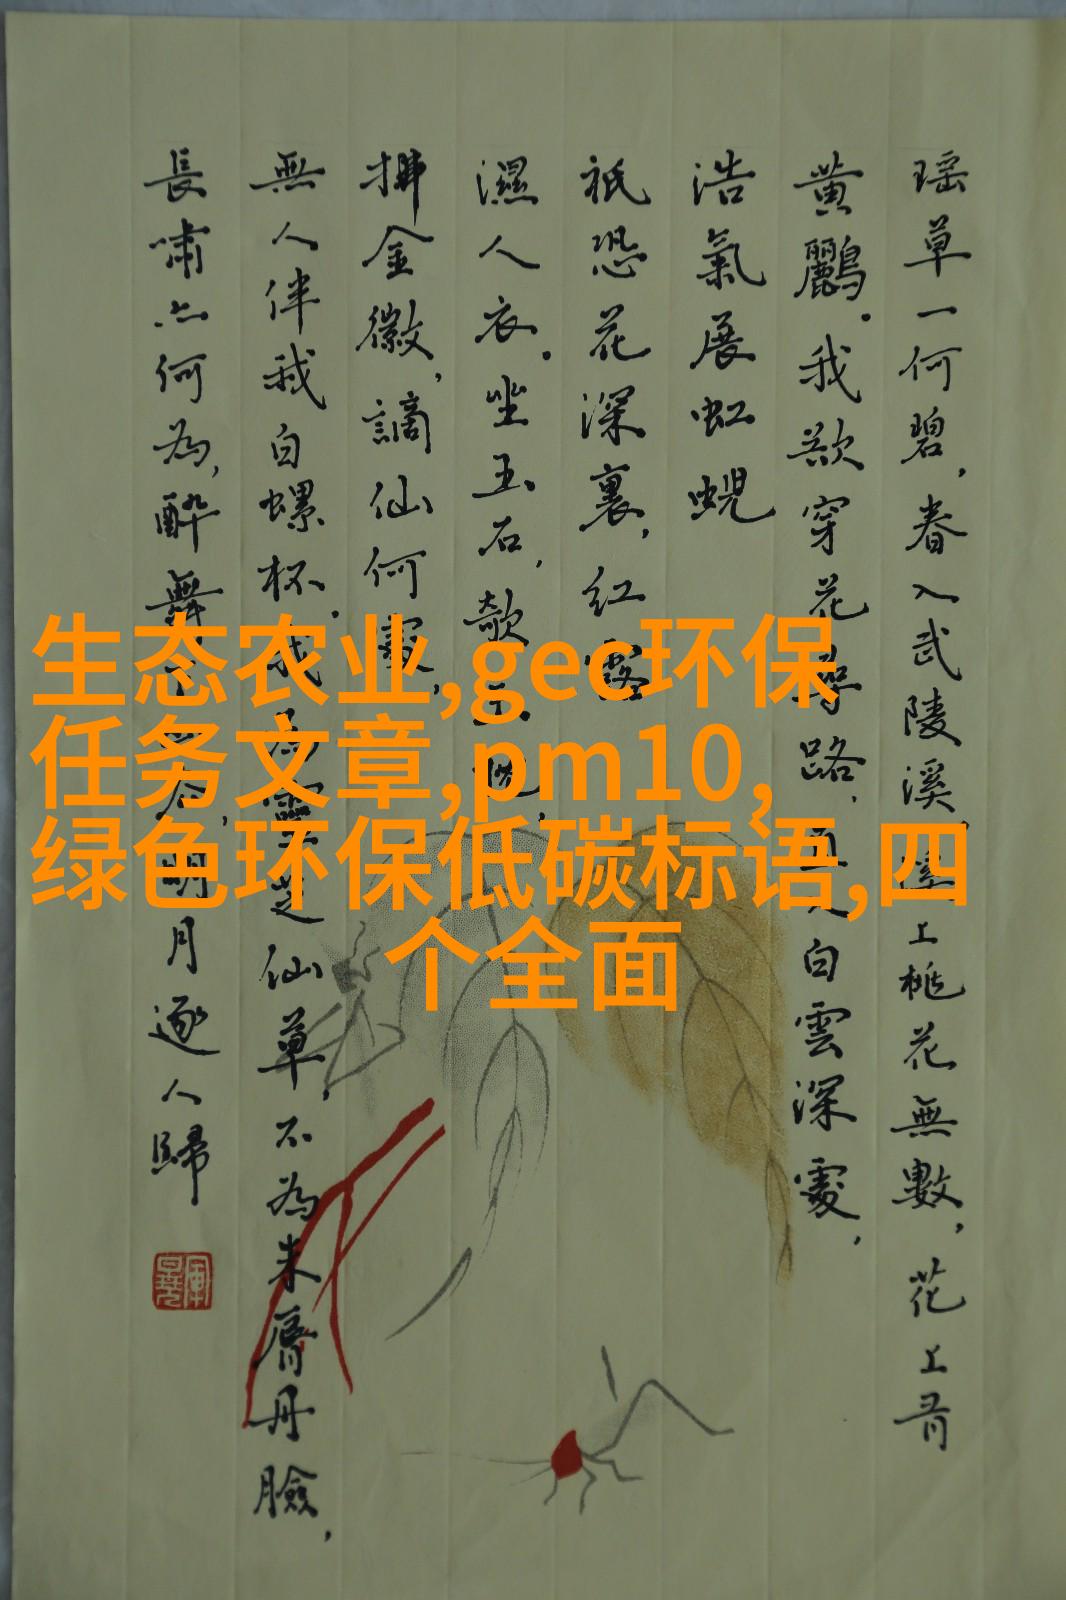 瑶草一何碧,春入武陵溪,溪上桃花無數,花上有
黄鸝。我欲穿花尋路,直入白雲深處,
浩氣展虹蜺
祇恐花深裏,紅露
濕人衣。坐玉石,欹玉枕,
拂金徽,謫仙何處,
無人伴我白螺杯。我為靈芝仙草,不為朱脣丹臉,
長嘯亦何為,醉舞下山去,明月逐人歸
生态农业,gec环保
任务文章,pm10,
绿色环保低碳标语,四
个全面